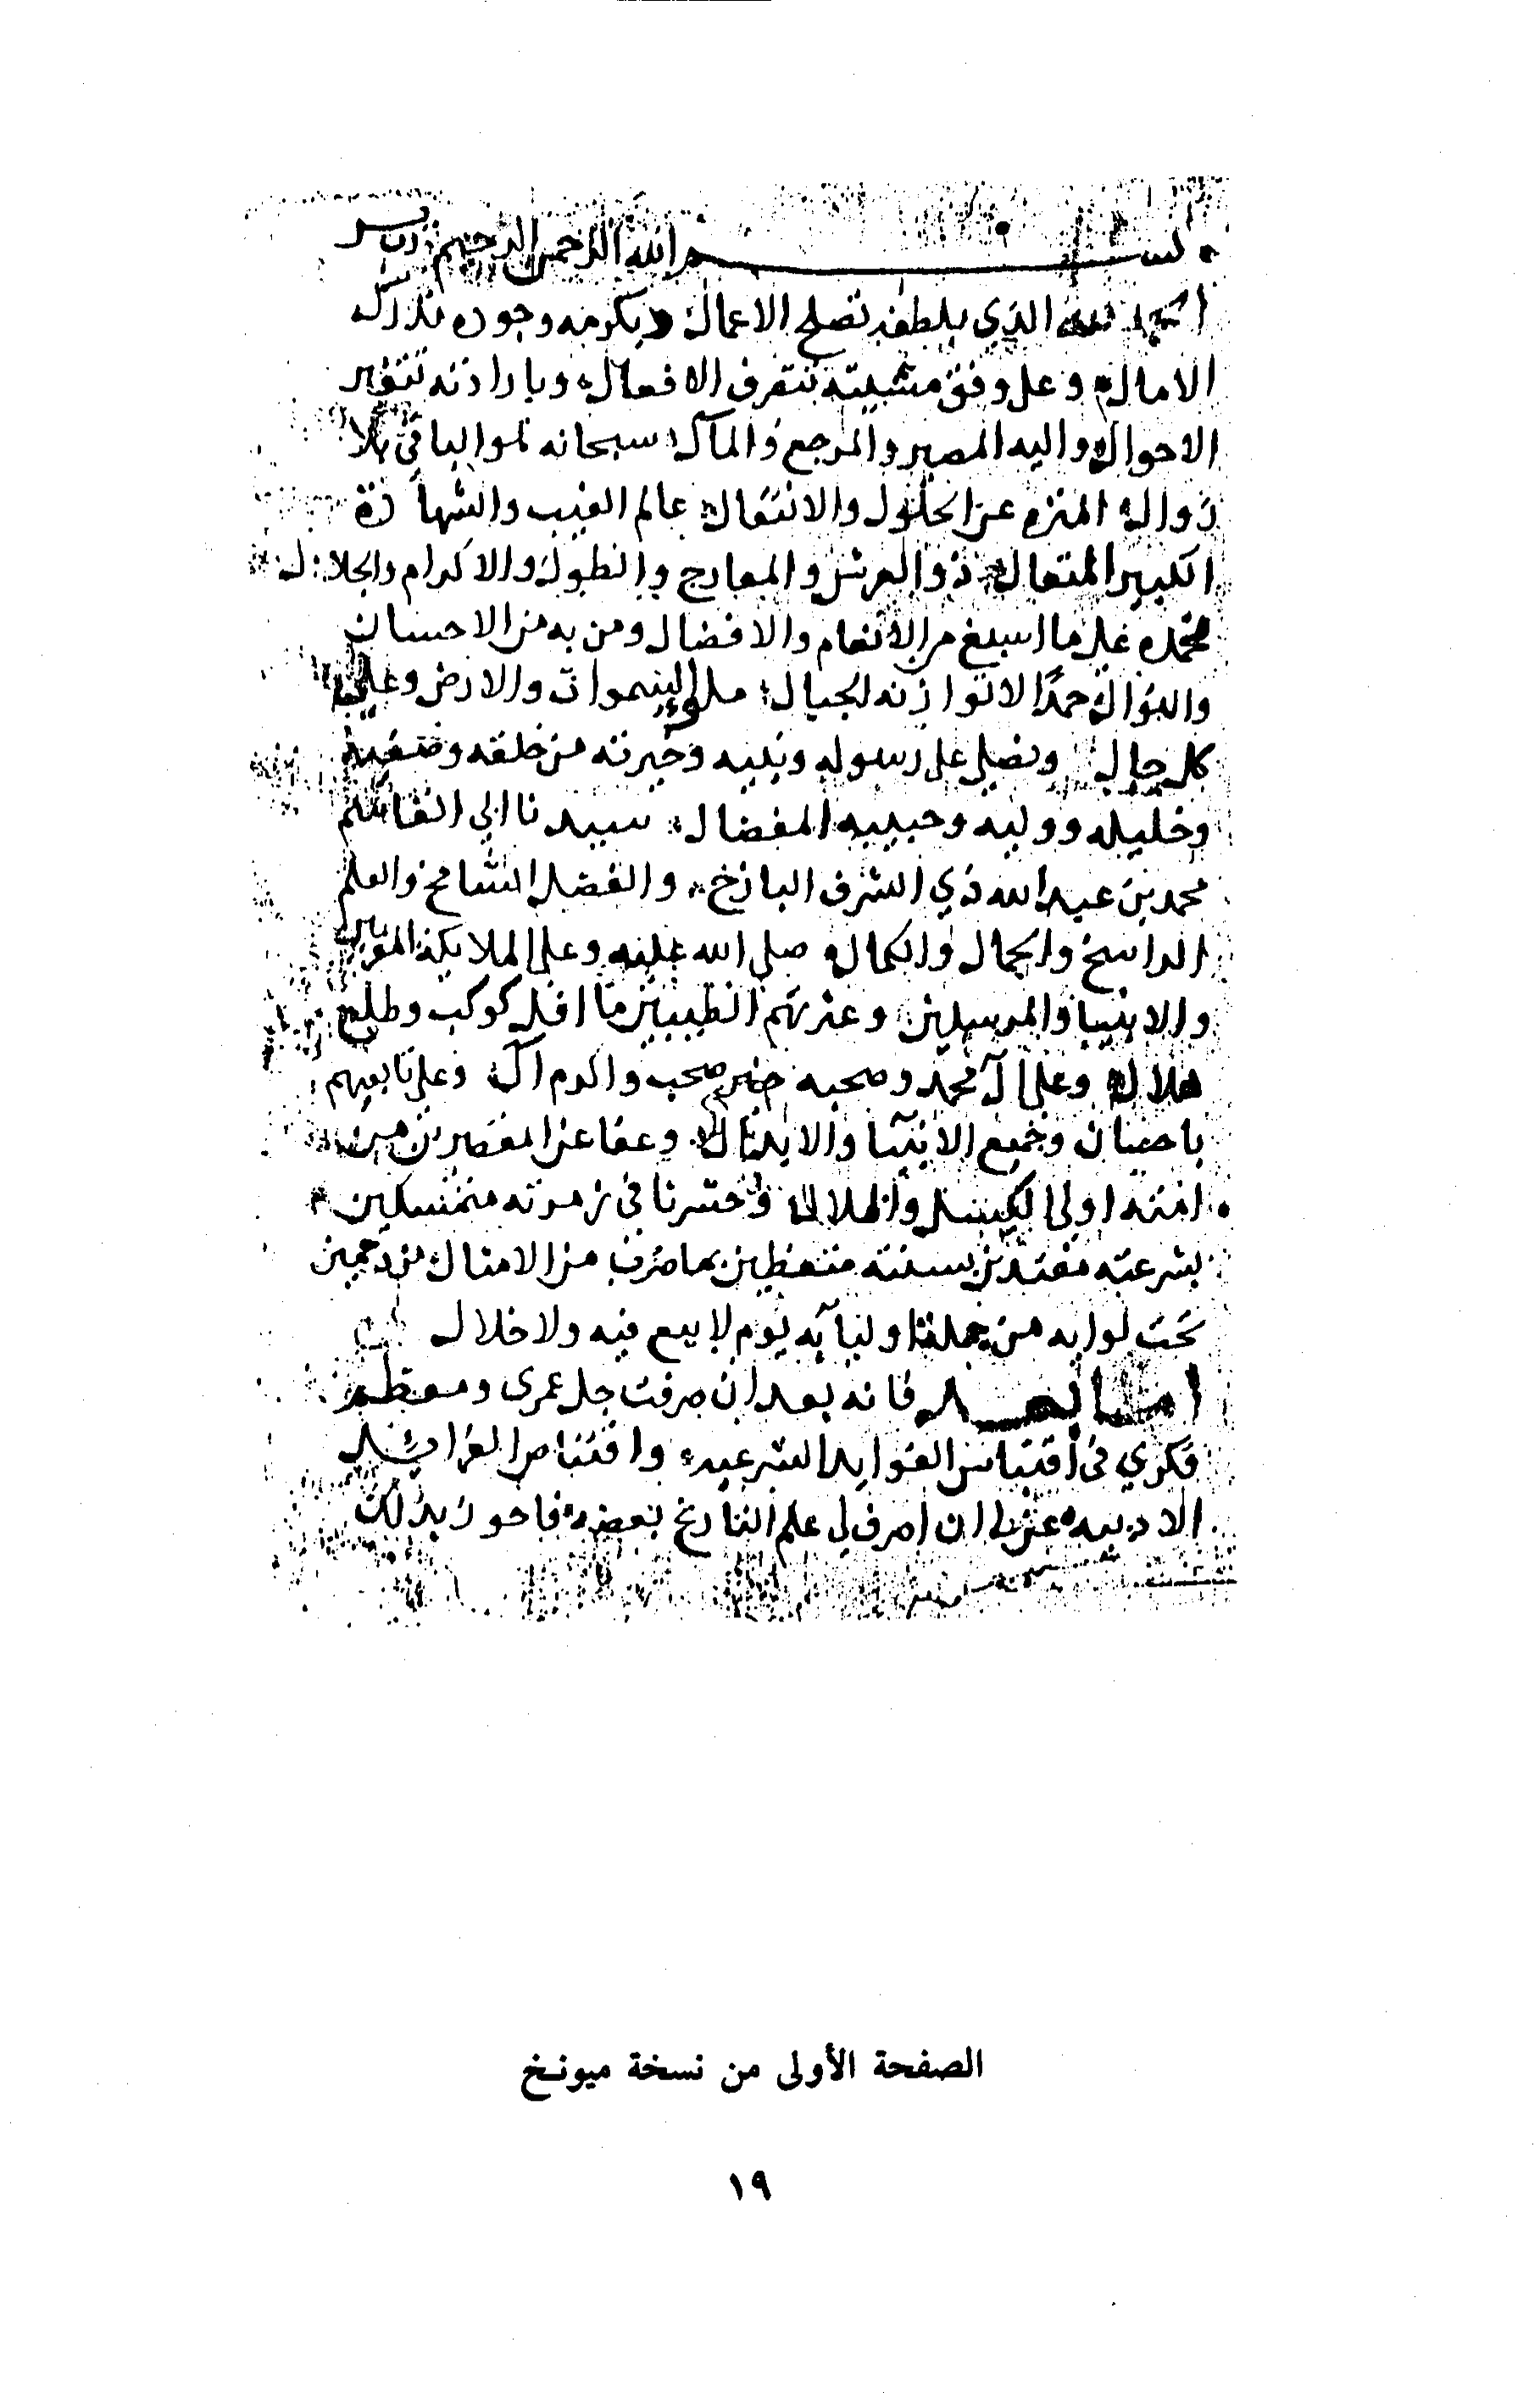 بسم الله الرحمن الرحيم رب يسر
الحمد لله الذي بلطفه تصلح الاعمال وبكرمه وجوده تدرك
الامال وعلى وفق مشيته تتصرف الافعال وبارادته تتغير
الاحوال واليه المصير والمرجع والمآل سبحانه هو الباقي بلا
زوال المنزه عن الحلول والانتقال عالم الغيب والشهادة
الكبير المتعال ذو العرش والمعارج والطول والاكرام والجلال
نحمده على ما اسبغ من الانعام والافضال ومن به من الاحسان
والنوال حمدًا لا توازنه الجبال ملء السموات والارض وعلى
كل حال ونصلي على رسوله ونبيه وخيرته من خلقه وصفيه
وخليله ووليه وحبيبه المفضال سيدنا ابي القاسم
محمد بن عبد الله ذي الشرف الباذخ والفضل الشامخ والعلم
الراسخ والجمال والكمال صلى الله عليه وعلى الملايكة المقربين
والانبيا والمرسلين وعترتهم الطيبين ما افل كوكب وطلع
هلال وعلى آل محمد وصحبه خير صحب واكرم آل وعلى تابعيهم
باحسان وجميع الاوليآ والابدال وعفا عن المقصرين من
امته اولى الكسل والملال وحشرنا في زمرته متمسكين
بشرعته مقتدين بسنته متعظين بما ضرب من الامثال مزدحمين
تحت لوايه من جملة اوليآيه يوم لا بيع فيه ولا خلال
اما بعد فانه بعد ان صرفت جل عمري ومعظم
فكري في اقتباس الفوايد الشرعيه واقتناص الفرايد
الادبيه عن لي ان اصرف لي علم التاريخ بعضه فاحوز بذلك
الصفحة الأولى من نسخة ميونخ
١٩